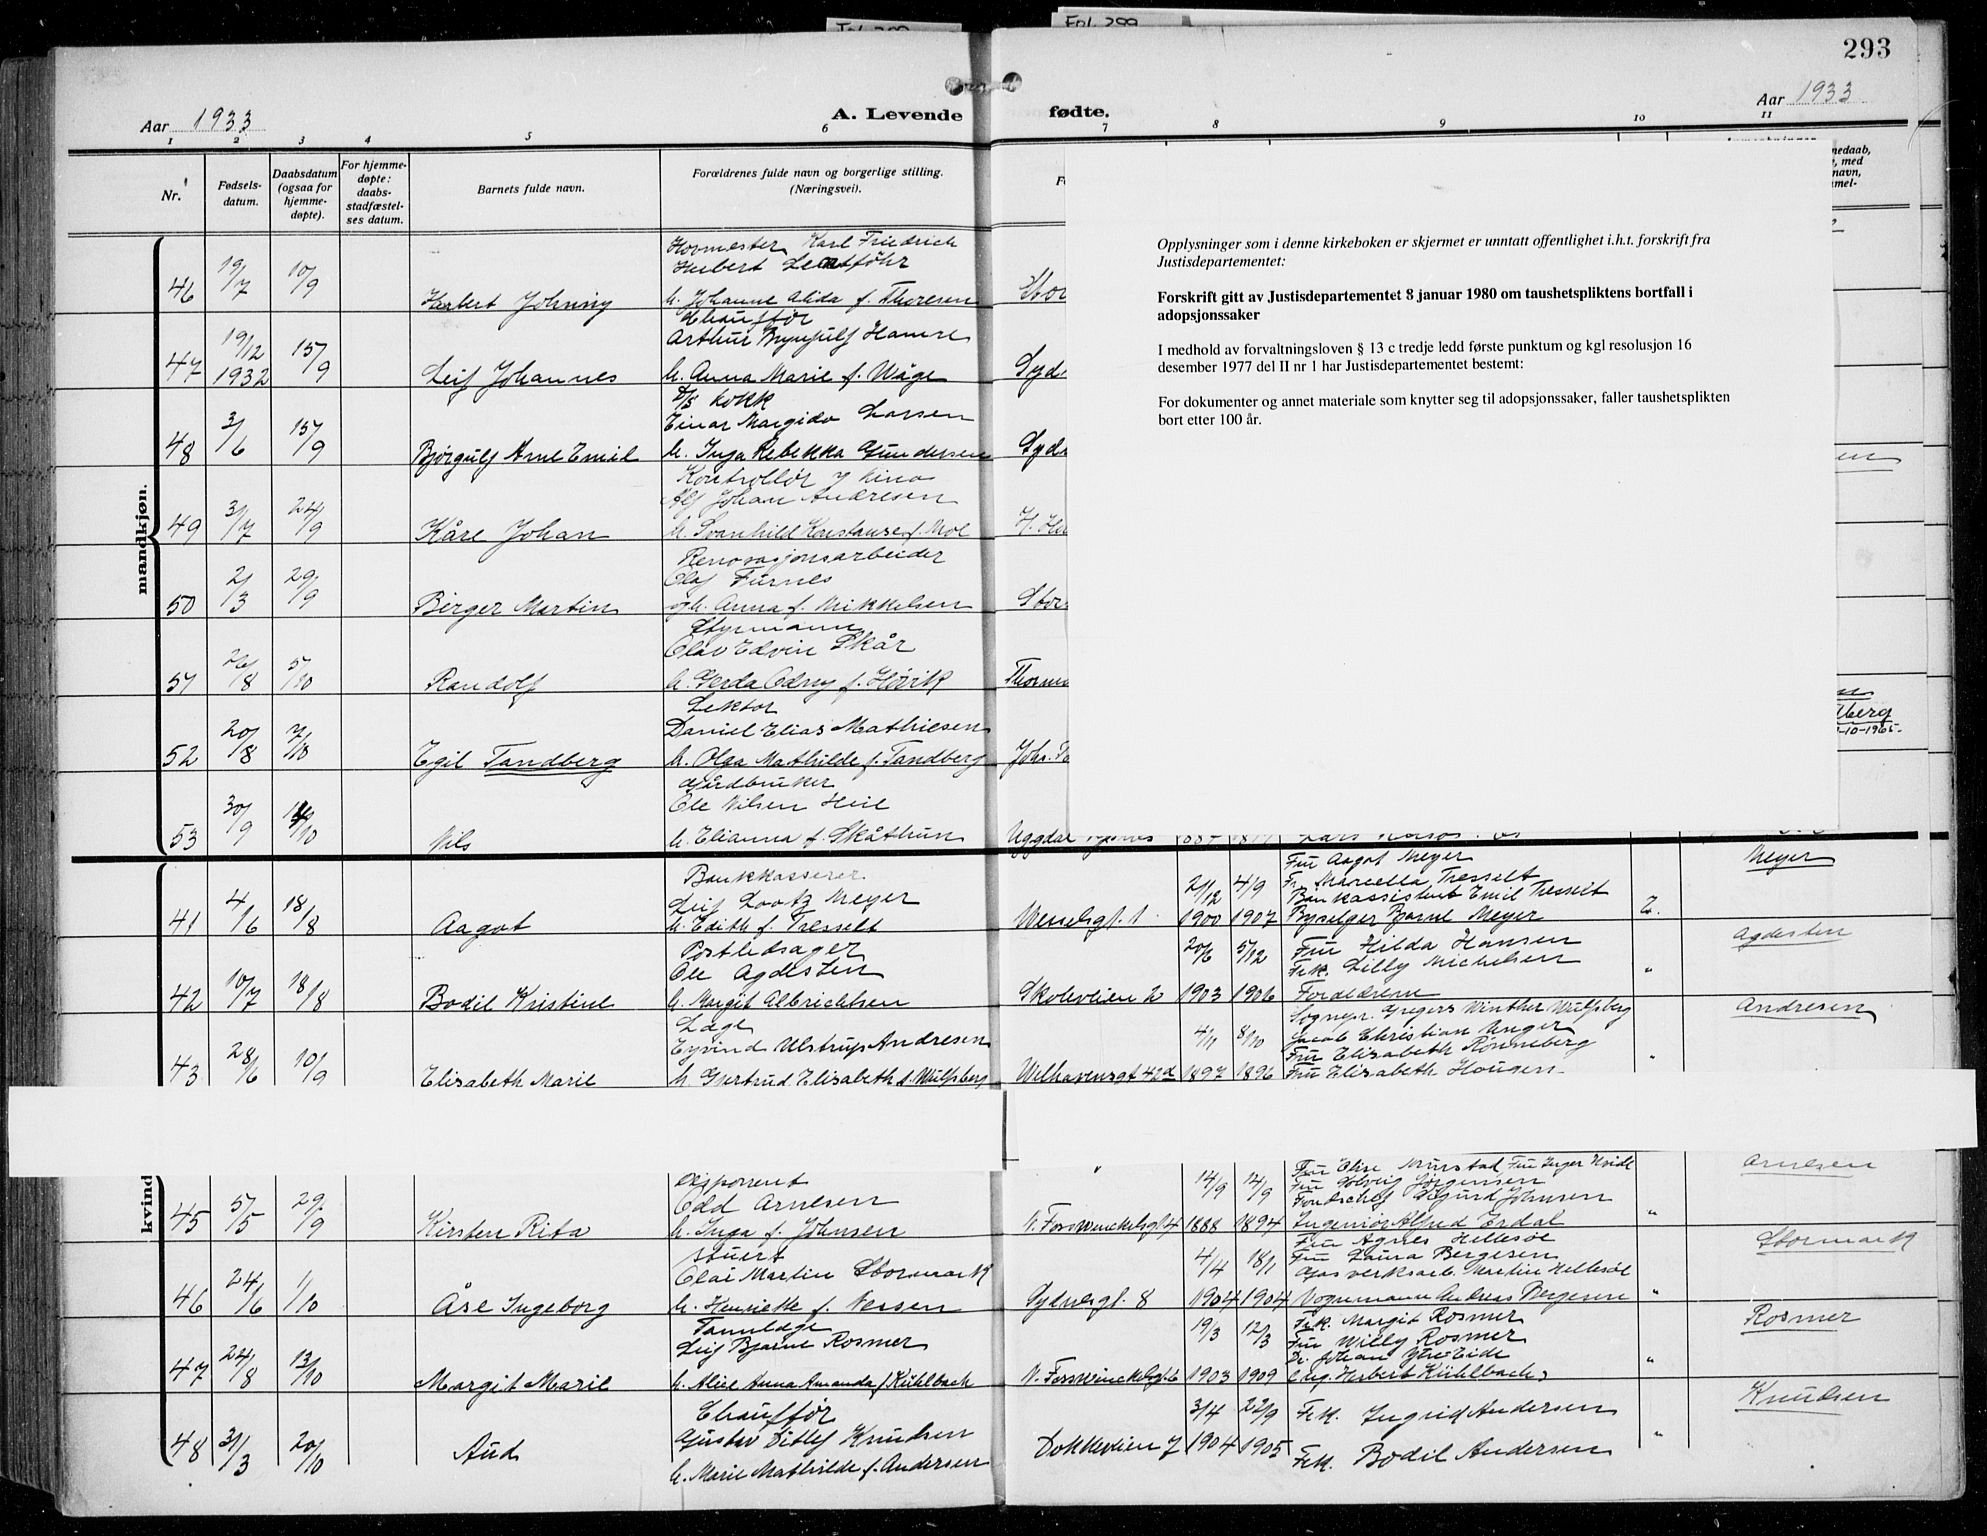 Fol. 299
293
Aar 1933
A. Levende fødte.
Aar 1933
1 2 3 4 5 6 7 8 9 10 11
Nr.
Fødsels-
datum.
Daabsdatum
(ogsaa for
hjemme-
døpte).
For hjemme-
døpte:
daabs-
stadfæstel-
ses datum.
Barnets fulde navn.
Forældrenes fulde navn og borgerlige stilling.
(Næringsvei).
nedaab,
, med
navn,
mel-
mandkjøn.
Hovmester Karl Friedrich
Herbert Lentföhr
46 19/7 10/9 Herbert Johnny h. Johanne Alida f. Thoresen Stor
Chauffør
Arthur Brynjulf Hamre
47 19/12 1932 15/9 Leif Johannes h. Anna Marie f. Wåge Syd
D/S kokk
Einar Margido Larsen
48 3/6 15/9 Bjørgulf Arne Emil h. Inga Rebekka Gundersen Syd
Kontrollør v/ kino
Alf Johan Andresen
49 3/7 24/9 Kåre Johan h. Svanhild Konstanse f. Moe H.
Renovasjonsarbeider
Olaf Furnes
50 2/3 29/9 Birger Martin h. Anna f. Mikkelsen Stor
Styrmann
Olav Edvin Skår
51 26/8 5/10 Randolf h. Gerda Odny f. Høvik Thorm
Lektor
Daniel Elias Mathiesen
52 20/8 7/10 Egil Tandberg h. Olga Mathilde f. Tandberg Johs.
dberg
-10-1965
Gårdbruker
Ole Nilsen Heie
53 30/9 Nils h. Elianna f. Skåthun Uggdal Tysnes
Opplysninger som i denne kirkeboken er skjermet er unntatt offentlighet i.h.t. forskrift fra
Justisdepartementet:
Forskrift gitt av Justisdepartementet 8 januar 1980 om taushetspliktens bortfall i
adopsjonssaker
I medhold av forvaltningsloven § 13 c tredje ledd første punktum og kgl resolusjon 16
desember 1977 del II nr 1 har Justisdepartementet bestemt:
For dokumenter og annet materiale som knytter seg til adopsjonssaker, faller taushetsplikten
bort etter 100 år.
kvind
Bankkasserer Fru Aagot Meyer Meyer
Leif Lootz Meyer 2/12 4/9 Fr. Marcella Tresselt
Bankassistent Emil Tresselt
41 4/6 18/8 Aagot h. Edith f. Tresselt Wesselsgt. 1 1900 1907 Byselger Bjarne Meyer
Postledsager 20/6 5/12 Fru Hilda Hansen Agdesten
Ole Agdesten Frk. Lilly Michelsen
42 10/7 18/8 Bodil Kristine h. Margit Albrichtsen Skoleveien 2 1903 1906 Foreldrene "
Læge Sognepr. Gregers Winther Wulfsberg Andresen
Eyvind Ulstrup Andresen 4/11 8/10 Jacob Christian Unger
Fru Elisabeth Rønneberg
43 28/6 10/9 Elisabeth Marie h. Gjertrud Elisabeth f. Wulfsberg Welhavensgt 42d 1897 1896 Fru Elisabeth Hougen "
Disponent Fru Elise Murstad, Fru Inger Hvide Arnesen
Odd Arnesen 14/9 12/9 Fru Solveig Jørgensen
Fondschef Sigurd Johnsen
45 5/5 29/9 Kirsten Rita h. Inga f. Johnsen N. Fosswinckelsgt 4 1888 1894 Ingeniør Alfred Erdal "
Stuert Fru Agnes Hellesøe Stormark
Olai Martin Stormark 4/4 18/1 Fru Laura Bergesen
Gasverksarb. Martin Hellesøe
46 24/6 1/10 Åse Ingeborg h. Henriette f. Nessen Sydnesgt. 8 1904 1904 Vognmann Andreas Bergesen "
Tannlæge 19/3 12/3 Frk. Margit Rosmer Rosmer
Leif Bjarne Rosmer Fru Willy Rosmer
Dr. Johan Ytre-Eide
47 24/8 13/10 Margit Marie h. Alice Anna Amanda f. Kühlbach N. Fosswinckelsgt 6 1903 1909 Herbert Kühlbach "
Chauffør Knudsen
Gustav Ditlef Knudsen 3/4 22/9 Frk. Ingrid Andersen
48 31/3 20/10 Aud h. Marie Mathilde f. Andersen Dokkeveien 7 1904 1905 Frk. Bodil Andersen "